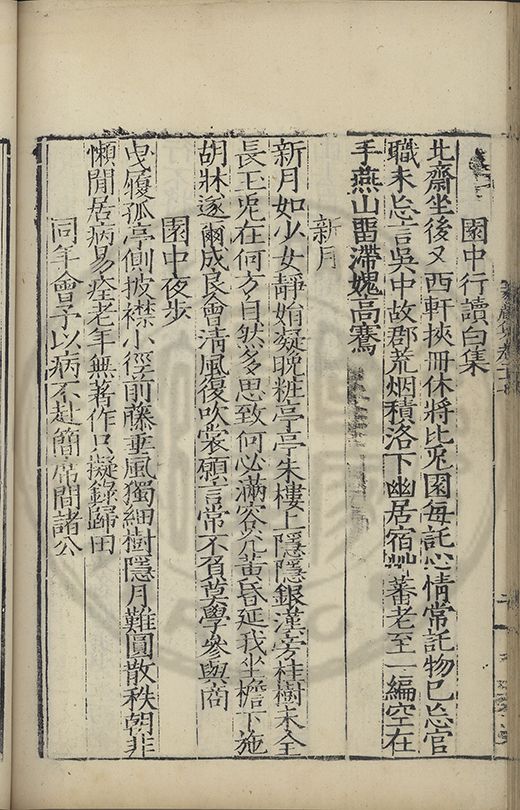 園中行讀白集
北齋坐後又西軒挾冊休將比兎園每託心情常託物已忘官
職未忘言吳中故郡荒烟積洛下幽居宿艸蕃老至一編空在
手燕山畱滯媿高騫
新月
新月如少女靜娟凝晚粧亭亭朱樓上隱隱銀漢旁桂樹未全
長玉兎在何方自然多思致何必滿容光黃昏延我坐檐下施
胡牀遂爾成良會清風復吹裳願言常不負莫學參與商
園中夜步
曳履孤亭側披襟小徑前藤垂風獨細樹隱月難圓散秩朝非
懶閒居病易痊老年無著作只擬錄歸田
同年會予以病不赴簡席間諸公